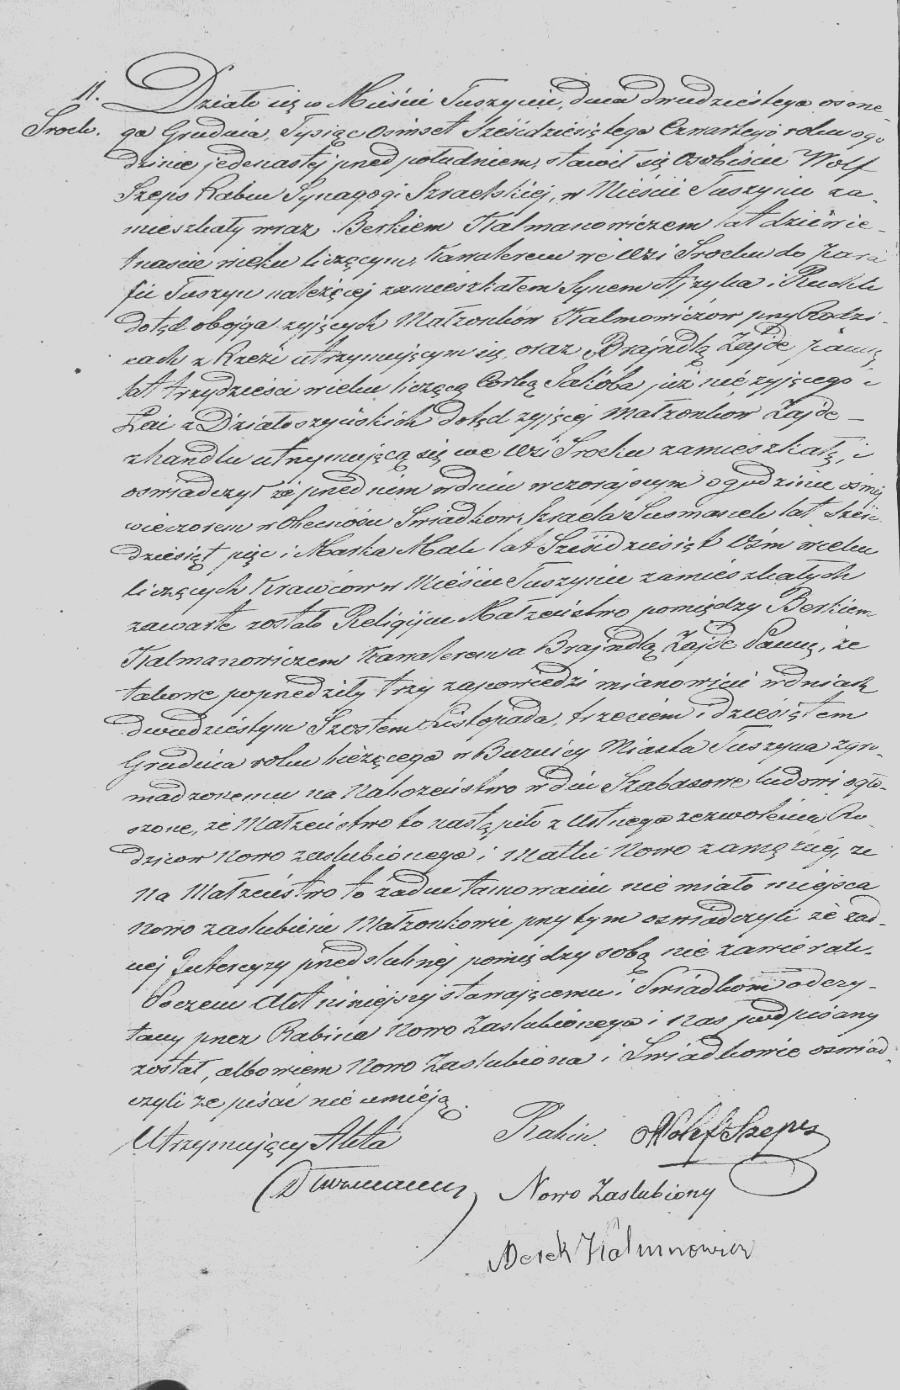 11.
Srock.
Działo się w Mieście Tuszynie, dnia dwudziestego ósme-
go Grudnia, Tysiąc ośmset sześćdziesiątego czwartego roku o go-
dzinie jedenastej przed południem, stawił się osobiście Wolf
Szeps Rabin Synagogi Izraelskiej, w Mieście Tuszynie za-
mieszkały wraz Berkiem Kalmanowiczem lat dziewię-
tnaście wieku liczącym, Kawalerem we Wsi Srocku do Para
fii Tuszyn należącej zamieszkałem Synem Ajzyka i Ruchli
dotąd obojga żyjących Małżonków Kalmowiczów przy Rodzi-
cach z Rzezi utrzymującym się, oraz Brajndlą Zajde Panną
lat trzydzieści wieku liczącą Córką Jakóba już nie żyjącego i
Łai z Działoszyńskich dotąd żyjącej Małżonków Zajde
z handlu utrzymującą się we Wsi Srocku zamieszkałą, i
oświadczył że przed niem w dniu wczorajszym o godzinie ósmej
wieczorem w obecności Świadków Izraela Susmanek lat sześć-
dziesiąt pięć i Marka Male lat Sześćdziesiąt Ośm wieku
liczących Krawców w Mieście Tuszynie zamieszkałych
zawarte zostało Religijne Małżeństwo pomiędzy Berkiem
Kalmanowiczem Kawalerem a Brajndlą Zajde Panną, że
takowe poprzedziły trzy zapowiedzi mianowicie w dniach
dwudziestym Szóstem Listopada, trzeciem i dziesiątem
Grudnia roku bieżącego w Bużnicy Miasta Tuszyna zgro-
madzonemu na Nabożeństwo w dni Szabasowe ludowi ogło-
szone, że Małżeństwo to nastąpiło z ustnego zezwolenia Ro-
dziców Nowo zaślubionego i Matki Nowo zamężnej, że
na Małżeństwo to żadne tamowanie nie miało miejsca
Nowo zaślubieni Małżonkowie przytym oświadczyli że żad-
nej Intercyzy przedślubnej pomiędzy sobą nie zawierali.
Poczem Akt niniejszy stawającemu i Świadkom odczy-
tany przez Rabina Nowo Zaślubionego i nas podpisany
został, albowiem Nowo Zaślubiona i Świadkowie oświad-
czyli że pisać nie umieją.
Utrzymujący Akta Rabin. Wolf Szeps
Nowo Zaślubiony
Berek Kalmnowicz